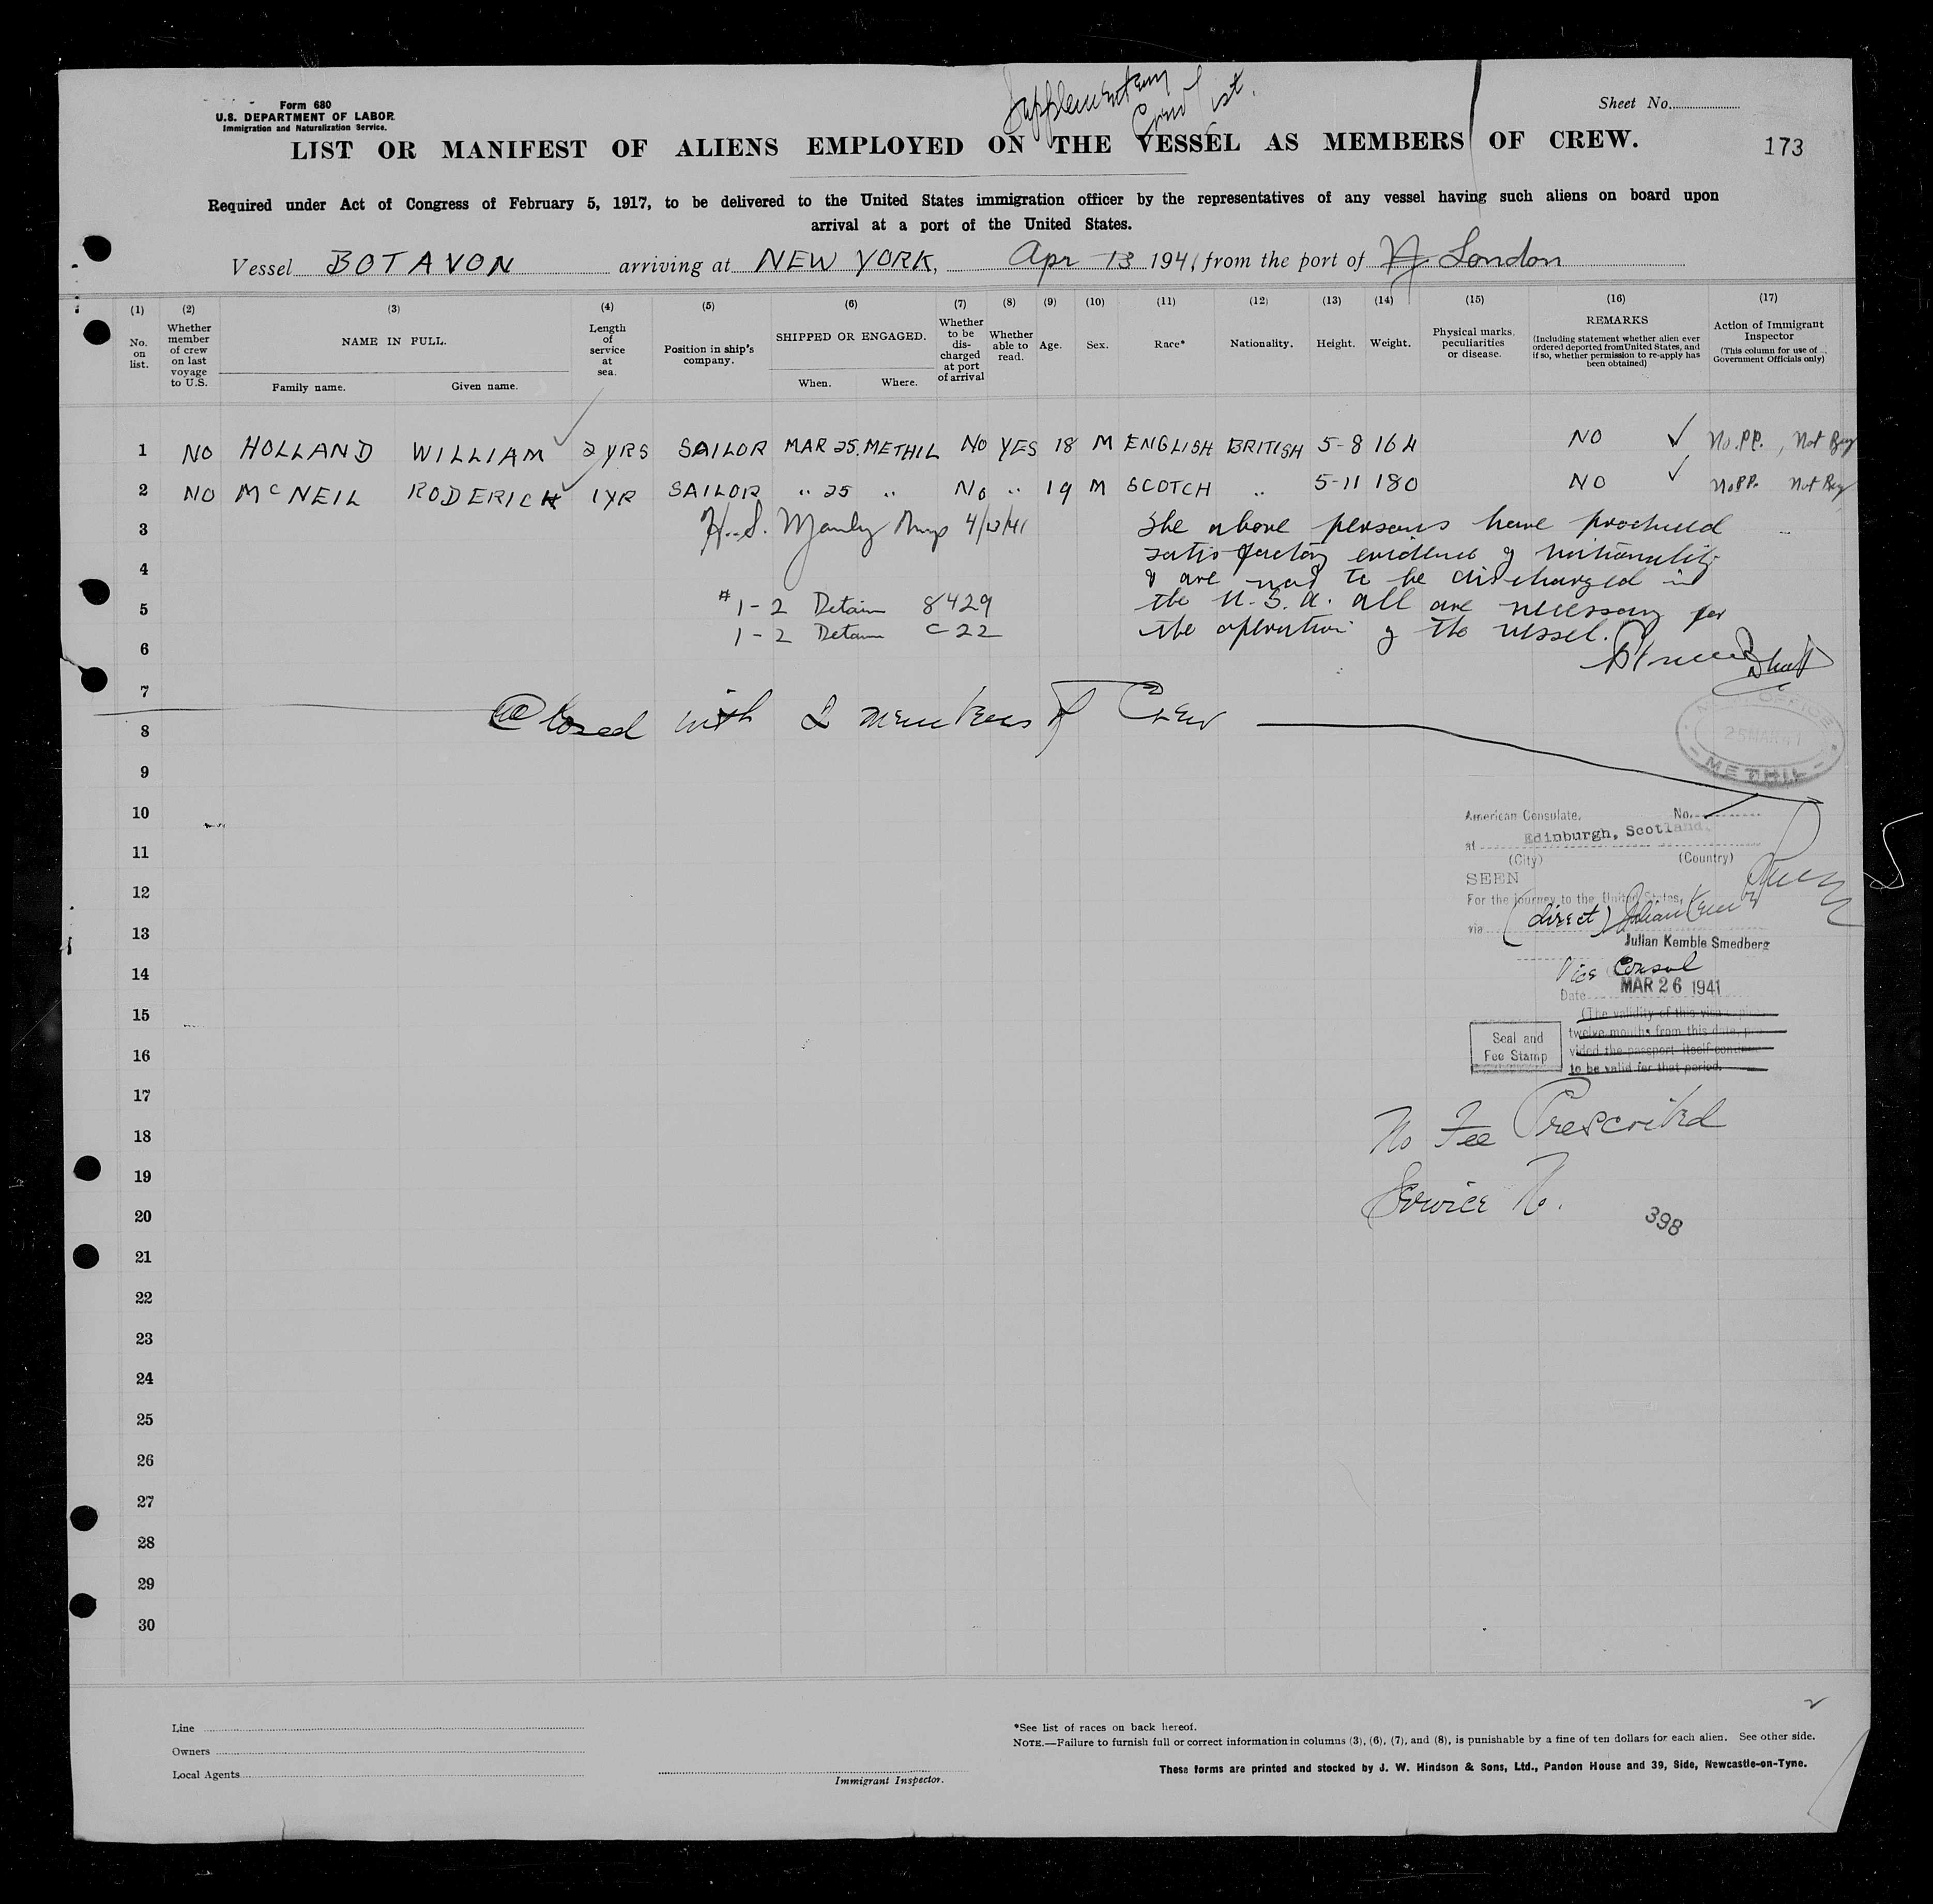 Supplementary
Crew List.
Form 680
U.S. DEPARTMENT OF LABOR
Immigration and Naturalization Service.
Sheet No.
LIST OR MANIFEST OF ALIENS EMPLOYED ON THE VESSEL AS MEMBERS OF CREW.
173
Required under Act of Congress of February 5, 1917, to be delivered to the United States immigration officer by the representatives of any vessel having such aliens on board upon
arrival at a port of the United States.
Vessel BOTAVON arriving at NEW YORK, Apr 13 1941, from the port of London
(1) (2) (3) (4) (5) (6) (7) (8) (9) (10) (11) (12) (13) (14) (15) (16) (17)
No. on list.
Whether member of crew on last voyage to U.S.
NAME IN FULL.
Family name. Given name.
Length of service at sea.
Position in ship's company.
SHIPPED OR ENGAGED.
When. Where.
Whether to be discharged at port of arrival
Whether able to read.
Age.
Sex.
Race*
Nationality.
Height.
Weight.
Physical marks, peculiarities or disease.
REMARKS
(Including statement whether alien ever ordered deported from United States, and if so, whether permission to re-apply has been obtained)
Action of Immigrant Inspector
(This column for use of Government Officials only)
1 NO HOLLAND WILLIAM 2 YRS SAILOR MAR 25. METHIL NO YES 18 M ENGLISH BRITISH 5-8 164 NO ✓ No. PP., Not Reg
2 NO McNEIL RODERICK 1 YR SAILOR " 25 " No " 19 M SCOTCH " 5-11 180 NO ✓ No PP. Not Reg
3 H. S. Manly 4/13/41 The above persons have produced
4 satisfactory evidence of nationality
& are not to be discharged in
5 #1-2 Detain 8429 the U.S.A. all are necessary for
1-2 Detain C22 the operation of the vessel.
6
7
8 Closed with 2 members of Crew
25 MAR 41
METHIL
9
10
American Consulate, No.
at Edinburgh, Scotland.
(City) (Country)
11
SEEN
12
For the journey to the United States,
via (direct)
13
Julian Kemble Smedberg
14
Vice Consul
Date MAR 26 1941
15
(The validity of this visa expires
twelve months from this date, pro-
vided the passport itself continues
to be valid for that period.
16
Seal and
Fee Stamp
17
18
No Fee Prescribed
19
20
Service No. 398
21
22
23
24
25
26
27
28
29
30
Line
Owners
Local Agents
Immigrant Inspector.
*See list of races on back hereof.
NOTE.—Failure to furnish full or correct information in columns (3), (6), (7), and (8), is punishable by a fine of ten dollars for each alien. See other side.
These forms are printed and stocked by J. W. Hindson & Sons, Ltd., Pandon House and 39, Side, Newcastle-on-Tyne.